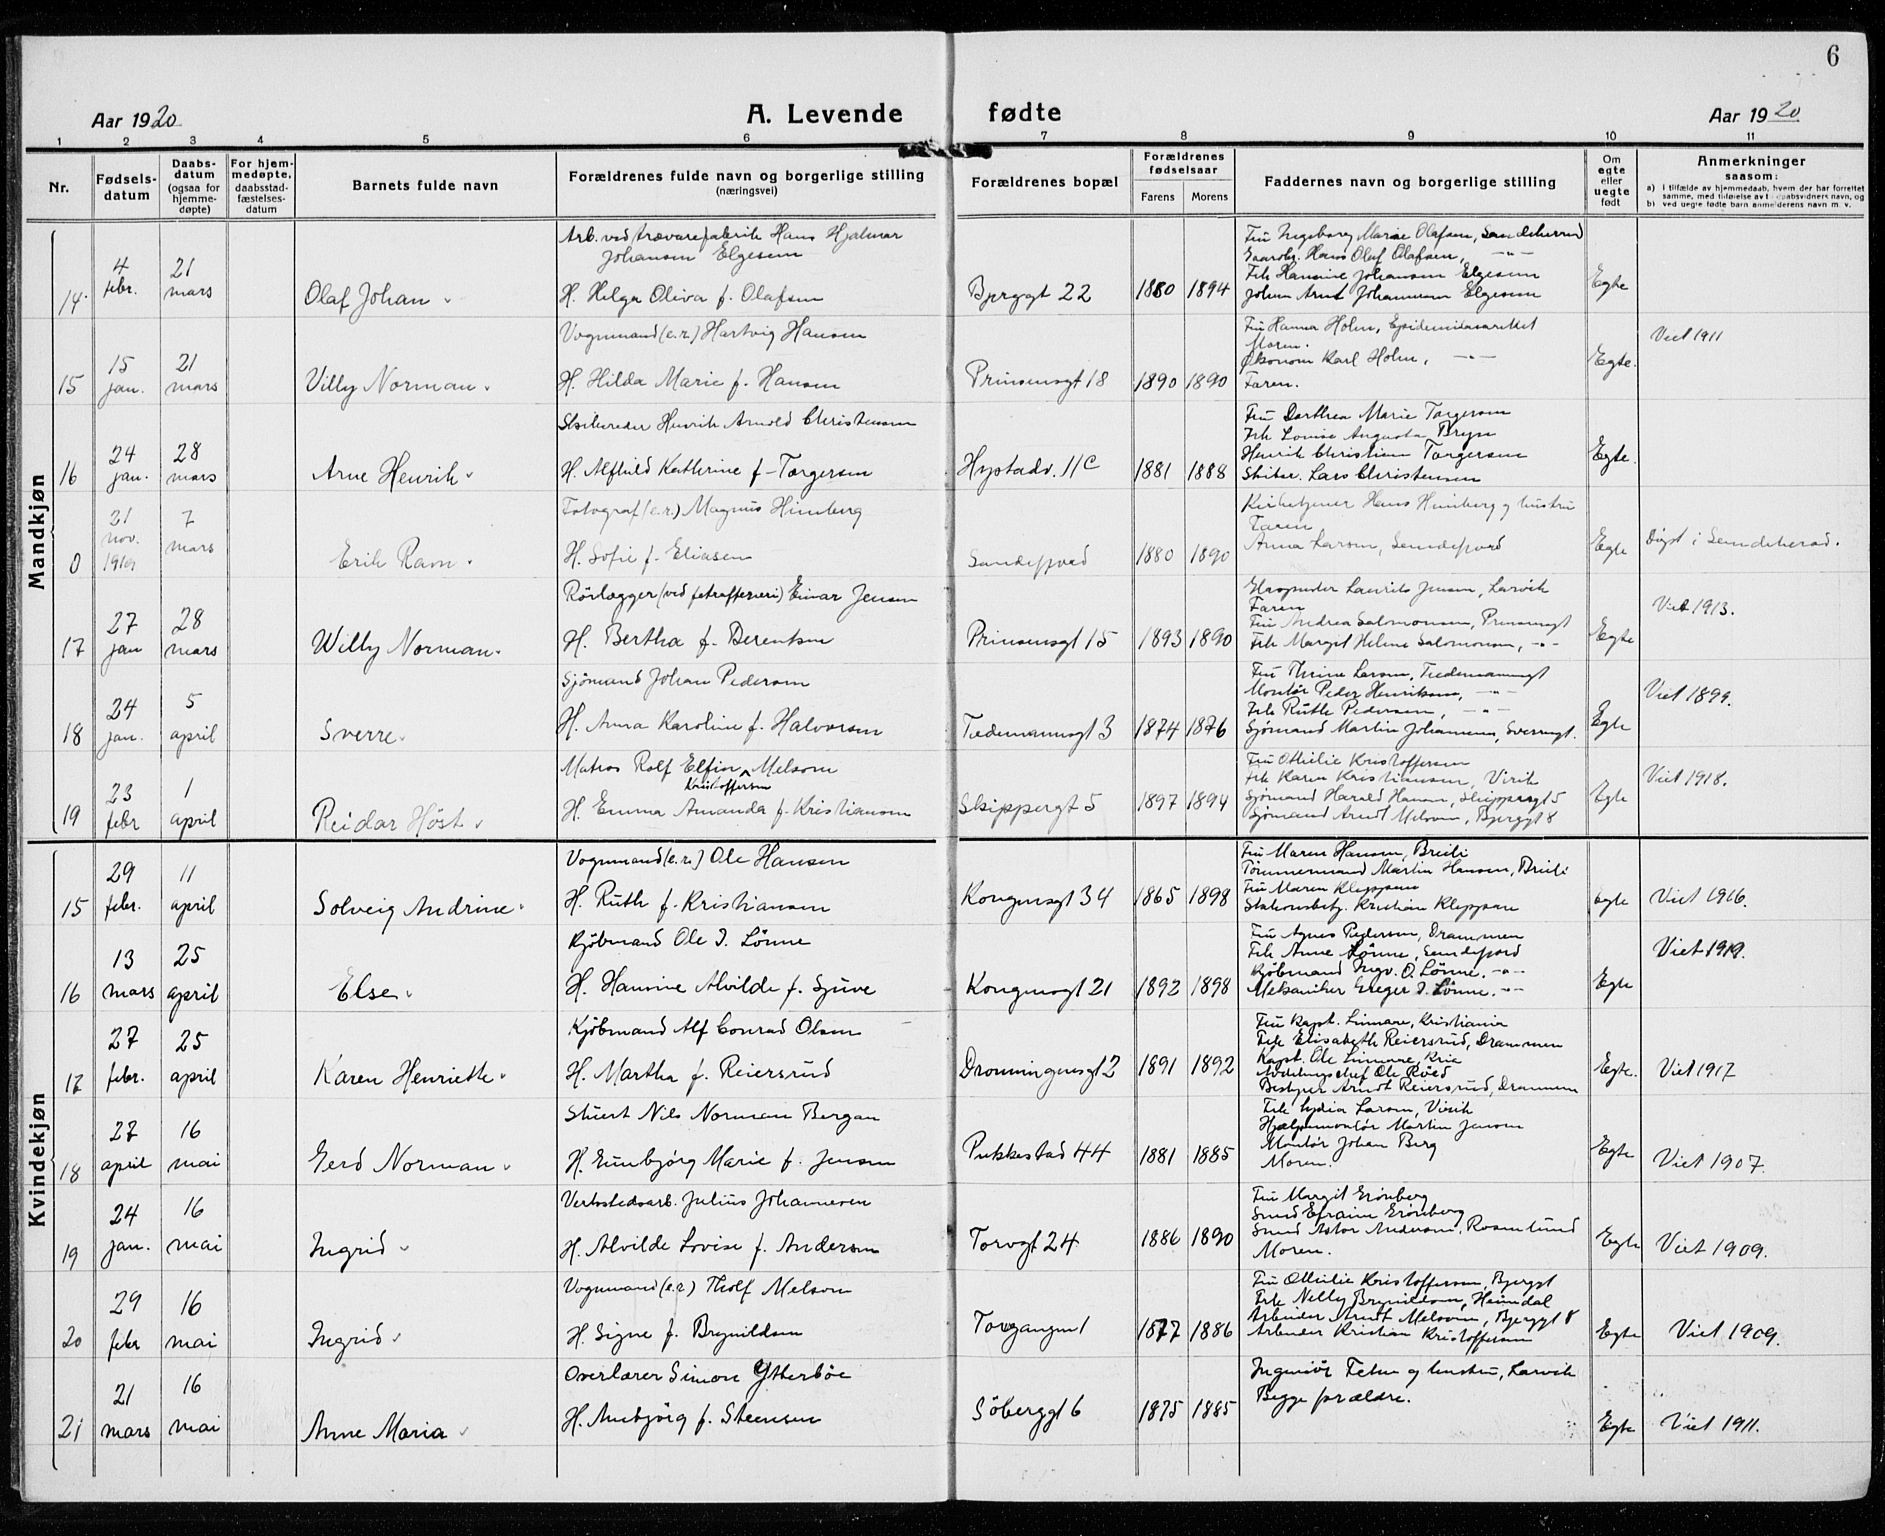 6
Aar 1920
A. Levende fødte
Aar 1920
1 2 3 4 5 6 7 8 9 10 11
Nr.
Fødsels-
datum
Daabs-
datum
(ogsaa for
hjemme-
døpte)
For hjem-
medøpte,
daabsstad-
fæstelses-
datum
Barnets fulde navn
Forældrenes fulde navn og borgerlige stilling
(næringsvei)
Forældrenes bopæl
Forældrenes
fødselsaar
Farens Morens
Faddernes navn og borgerlige stilling
Om
egte
eller
uegte
født
Anmerkninger
saasom:
a) i tilfælde av hjemmedaab, hvem der har forrettet
samme, med tilføielse av daabsvidners navn, og
b) ved uegte fødte barn anmelderens navn m. v.
Mandkjøn
14.
4
febr.
21
mars
Olaf Johan
Arb. ved trævarefabrik Hans Hjalmar
Johansen Elgesem
H. Helga Oliva f. Olafsen
Bjerggt 22
1880 1894
Fru Ingeborg Marie Olafsen, Sandeherred
Gaardbr. Hans Olaf Olafsen, -"-
Frk Hansine Johansen Elgesem
Johan Arnt Johannesen Elgesem
Egte
15
15
jan.
21
mars
Villy Norman
Vognmand (e.r.) Hartvig Hansen
H. Hilda Marie f. Hansen
Prinsensgt 18
1890 1890
Fru Hanna Holm, Epidemilasarettet
Moren.
Økonom Karl Holm, -"-
Faren.
Egte.
Viet 1911
16
24
jan.
28
mars
Arne Henrik
Skibsreder Henrik Arnold Christensen
H. Alfhild Kathrine f. Torgersen
Hystadv. 11C
1881 1888
Fru Dorthea Marie Torgersen
Frk Lovise Augusta Bryn
Henrik Christian Torgersen
Skibsr. Lars Christensen
Egte.
0
21
nov.
1919
7
mars
Erik Ravn
Fotograf (e.r.) Magnus Himberg
H. Sofie f. Eliasen
Sandefjord
1880 1890
Kirketjener Hans Himberg og hustru
Faren
Anna Larsen, Sandefjord
Egte
Døpt i Sandeherad.
17
27
jan
28
mars
Willy Norman
Rörlægger (ved fetraffineri) Einar Jensen
H. Bertha f. Berentsen
Prinsensgt 15
1893 1890
Laurits Jensen, Larvik
Faren
Fru Andrea Salomonsen, Prinsensgt
Frk Margit Helene Salomonsen, -"-
Egte
Viet 1913.
18
24
jan.
5
april
Sverre
Sjömand Johan Pedersen
H. Anna Karoline f. Halvorsen
Tiedemannsgt 3
1874 1876
Fru Thrine Larsen, Tiedemannsgt
Montör Peder Henriksen, -"-
Frk Ruth Pedersen, -"-
Sjømand Martin Johannesen, Sverresgt.
Egte
Viet 1899.
19
23
febr
1
april
Reidar Höst
Matros Rolf Elfin Melsom
Kristoffersen
H. Emma Amanda f. Kristiansen
Skippergt 5
1897 1894
Fru Othilie Kristoffersen
Frk Karen Kristiansen, Virik
Sjömand Harald Hansen, Skippergt 5
Sjömand Arndt Melsom, Bjerggt 8
Egte
Viet 1918.
Kvindekjøn
15
29
febr.
11
april
Solveig Andrine
Vognmand (e.r.) Ole Hansen
H. Ruth f. Kristiansen
Kongensgt 34
1865 1898
Fru Maren Hansen, Breili
Tömmermand Martin Hansen, Breili
Fru Maren Kleppan
Stationsbetj. Kristian Kleppan
Egte
Viet 1916.
16
13
mars
25
april
Else
Kjöbmand Ole J. Lönne
H. Hansine Alvilde f. Sjuve
Kongensgt 21
1892 1898
Fru Agnes Pedersen, Drammen
Frk Anne Lönne, Sandefjord
Kjöbmand Ingv. O. Lönne, -"-
Mekaniker J. Lönne. -"-
Egte
Viet 1919.
17
27
febr.
25
april
Karen Henriette
Kjöbmand Alf Conrad Olsen
H. Martha f. Reiersrud
Dronningensgt 2
1891 1892
Fru kapt. Linnare, Kristiania
Frk Elisabeth Reiersrud, Drammen
Kapt. Ole Linnare, Kria
Avdelingschef Ole Röed
Bestyrer Arndt Reiersrud, Drammen
Egte.
Viet 1917
18
27
april
16
mai
Gerd Norman
Stuert Nils Norman Bergan
H. Gunbjörg Marie f. Jensen
Pukkestad 44
1881 1885
Frk Lydia Larsen, Virik
Hjælpemontör Martin Jensen
Montör Johan Berg
Moren.
Egte
Viet 1907.
19
24
jan.
16
mai
Ingrid
Verkstedsarb. Julius Johannesen
H. Alvilde Lovise f. Andersen
Torvgt 24
1886 1890
Fru Margit Grönberg
Smed Efraim Grönberg
Smed Astor Andersen, Rosenlund
Moren.
Egte
Viet 1909.
20
29
febr
16
mai
Ingrid
Vognmand (e.r.) Tholf Melsom
H. Signe f. Brynildsen
Torgangen 1
1877 1886
Fru Othilie Kristoffersen, Bjerggt
Frk Nelly Brynildsen, Heimdal
Arbeider Arndt Melsom, Bjerggt 8
Arbeider Kristian Kristoffersen
Egte
Viet 1909.
21
21
mars
16
mai
Anne Maria
Overlærer Simon Ytterböe
H. Anbjörg f. Steensen
Söberggt 6
1875 1885
Ingeniör og hustru, Larvik
Begge forældre.
Egte
Viet 1911.